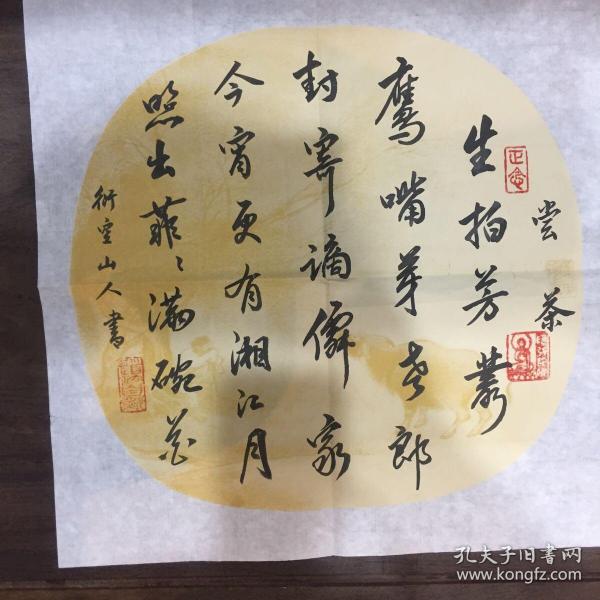 尝茶
生拍芳丛
鹰嘴芽老郎
封寄谪仙家
今宵更有湘江月
照出菲〻满碗花
衍空山人书
正念
孔夫子旧书网
www.kongfz.com